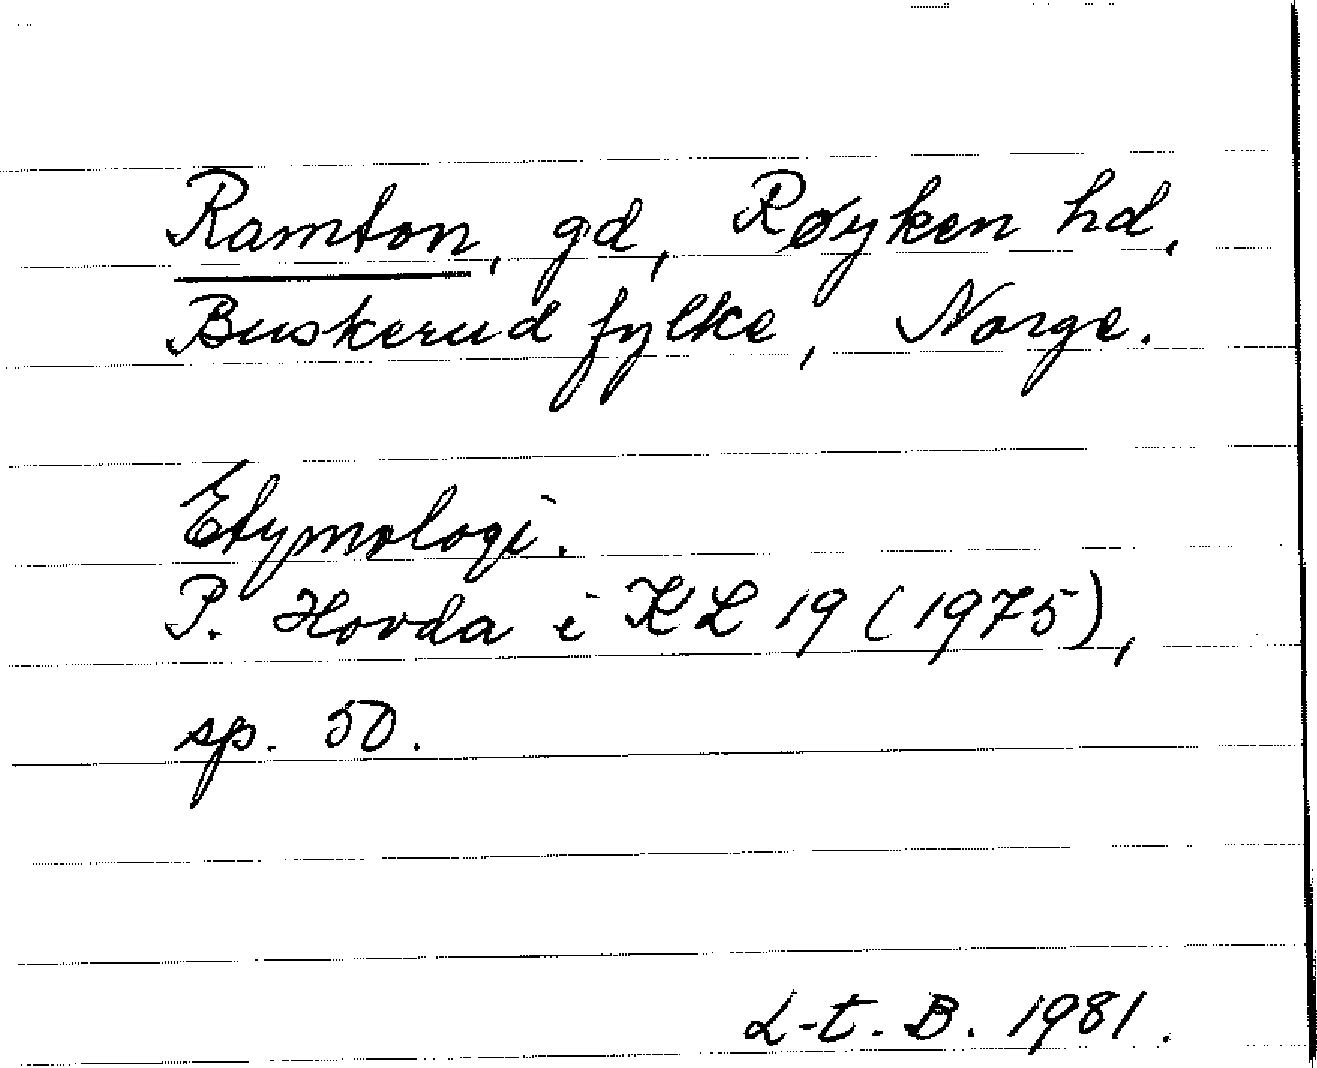 Ramton, gd, Røyken hd,
Buskerud fylke, Norge.
Etymologi.
P. Hovda i KL 19 (1975),
sp. 50.
L-t. B. 1981.